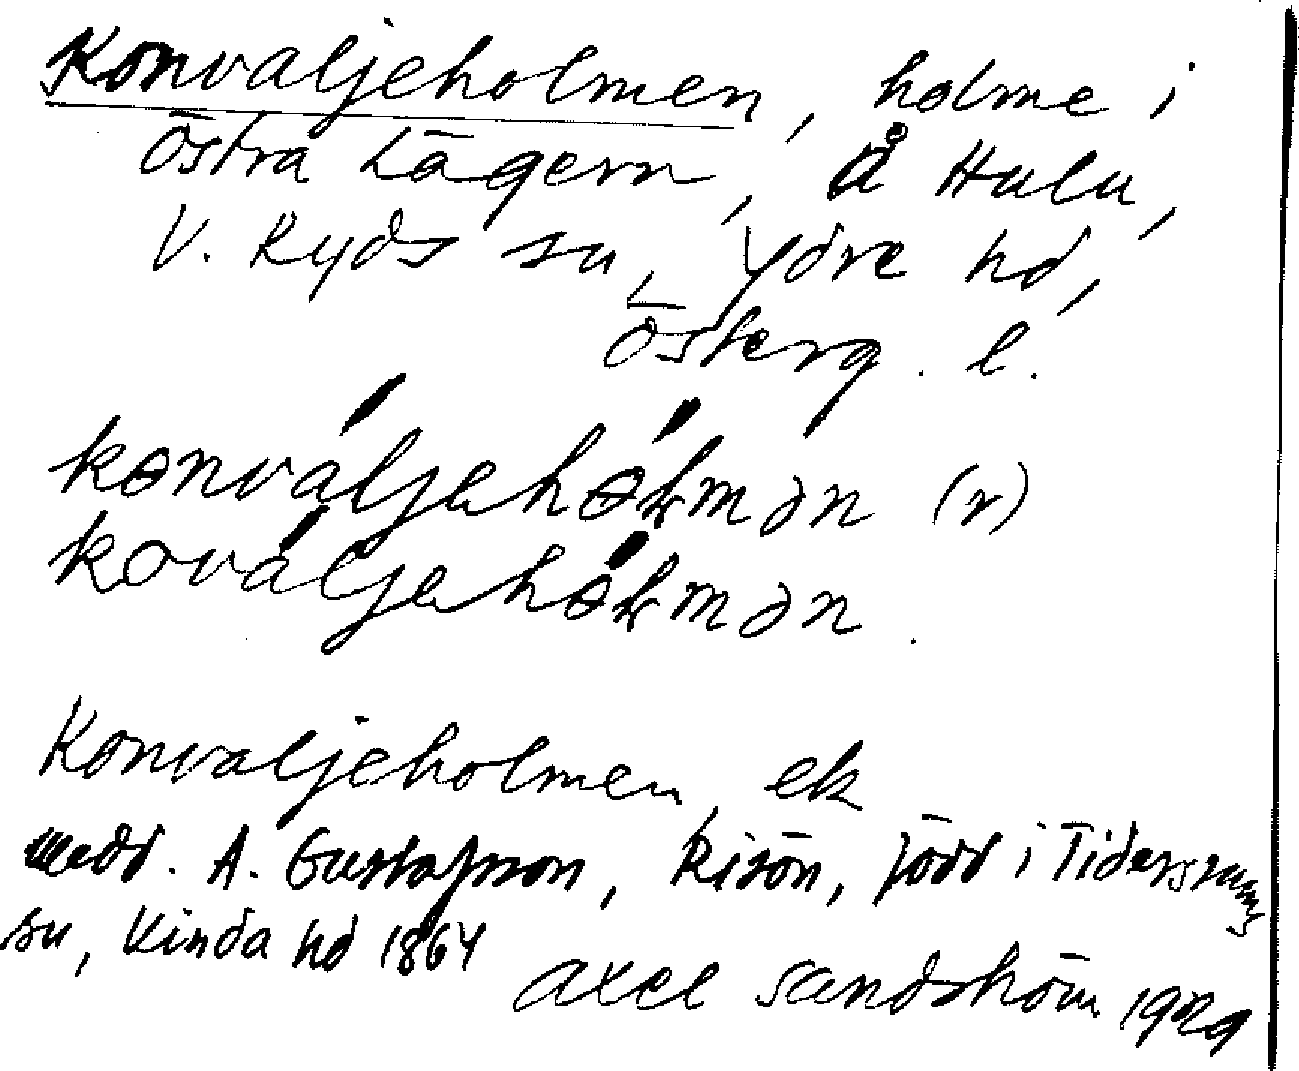 Konvaljeholmen, holme i
Östra Lägern, å Hulu,
V. Ryds sn, Ydre hd,
Österg. l.
kɵnváljɵhɵ́ɫmən (r)
kováljɵhɵ́ɫmən.
Konvaljeholmen, ek
medd. A. Gustafsson, Risön, född i Tidersrums
sn, Kinda hd 1864
Axel Sandström 1929